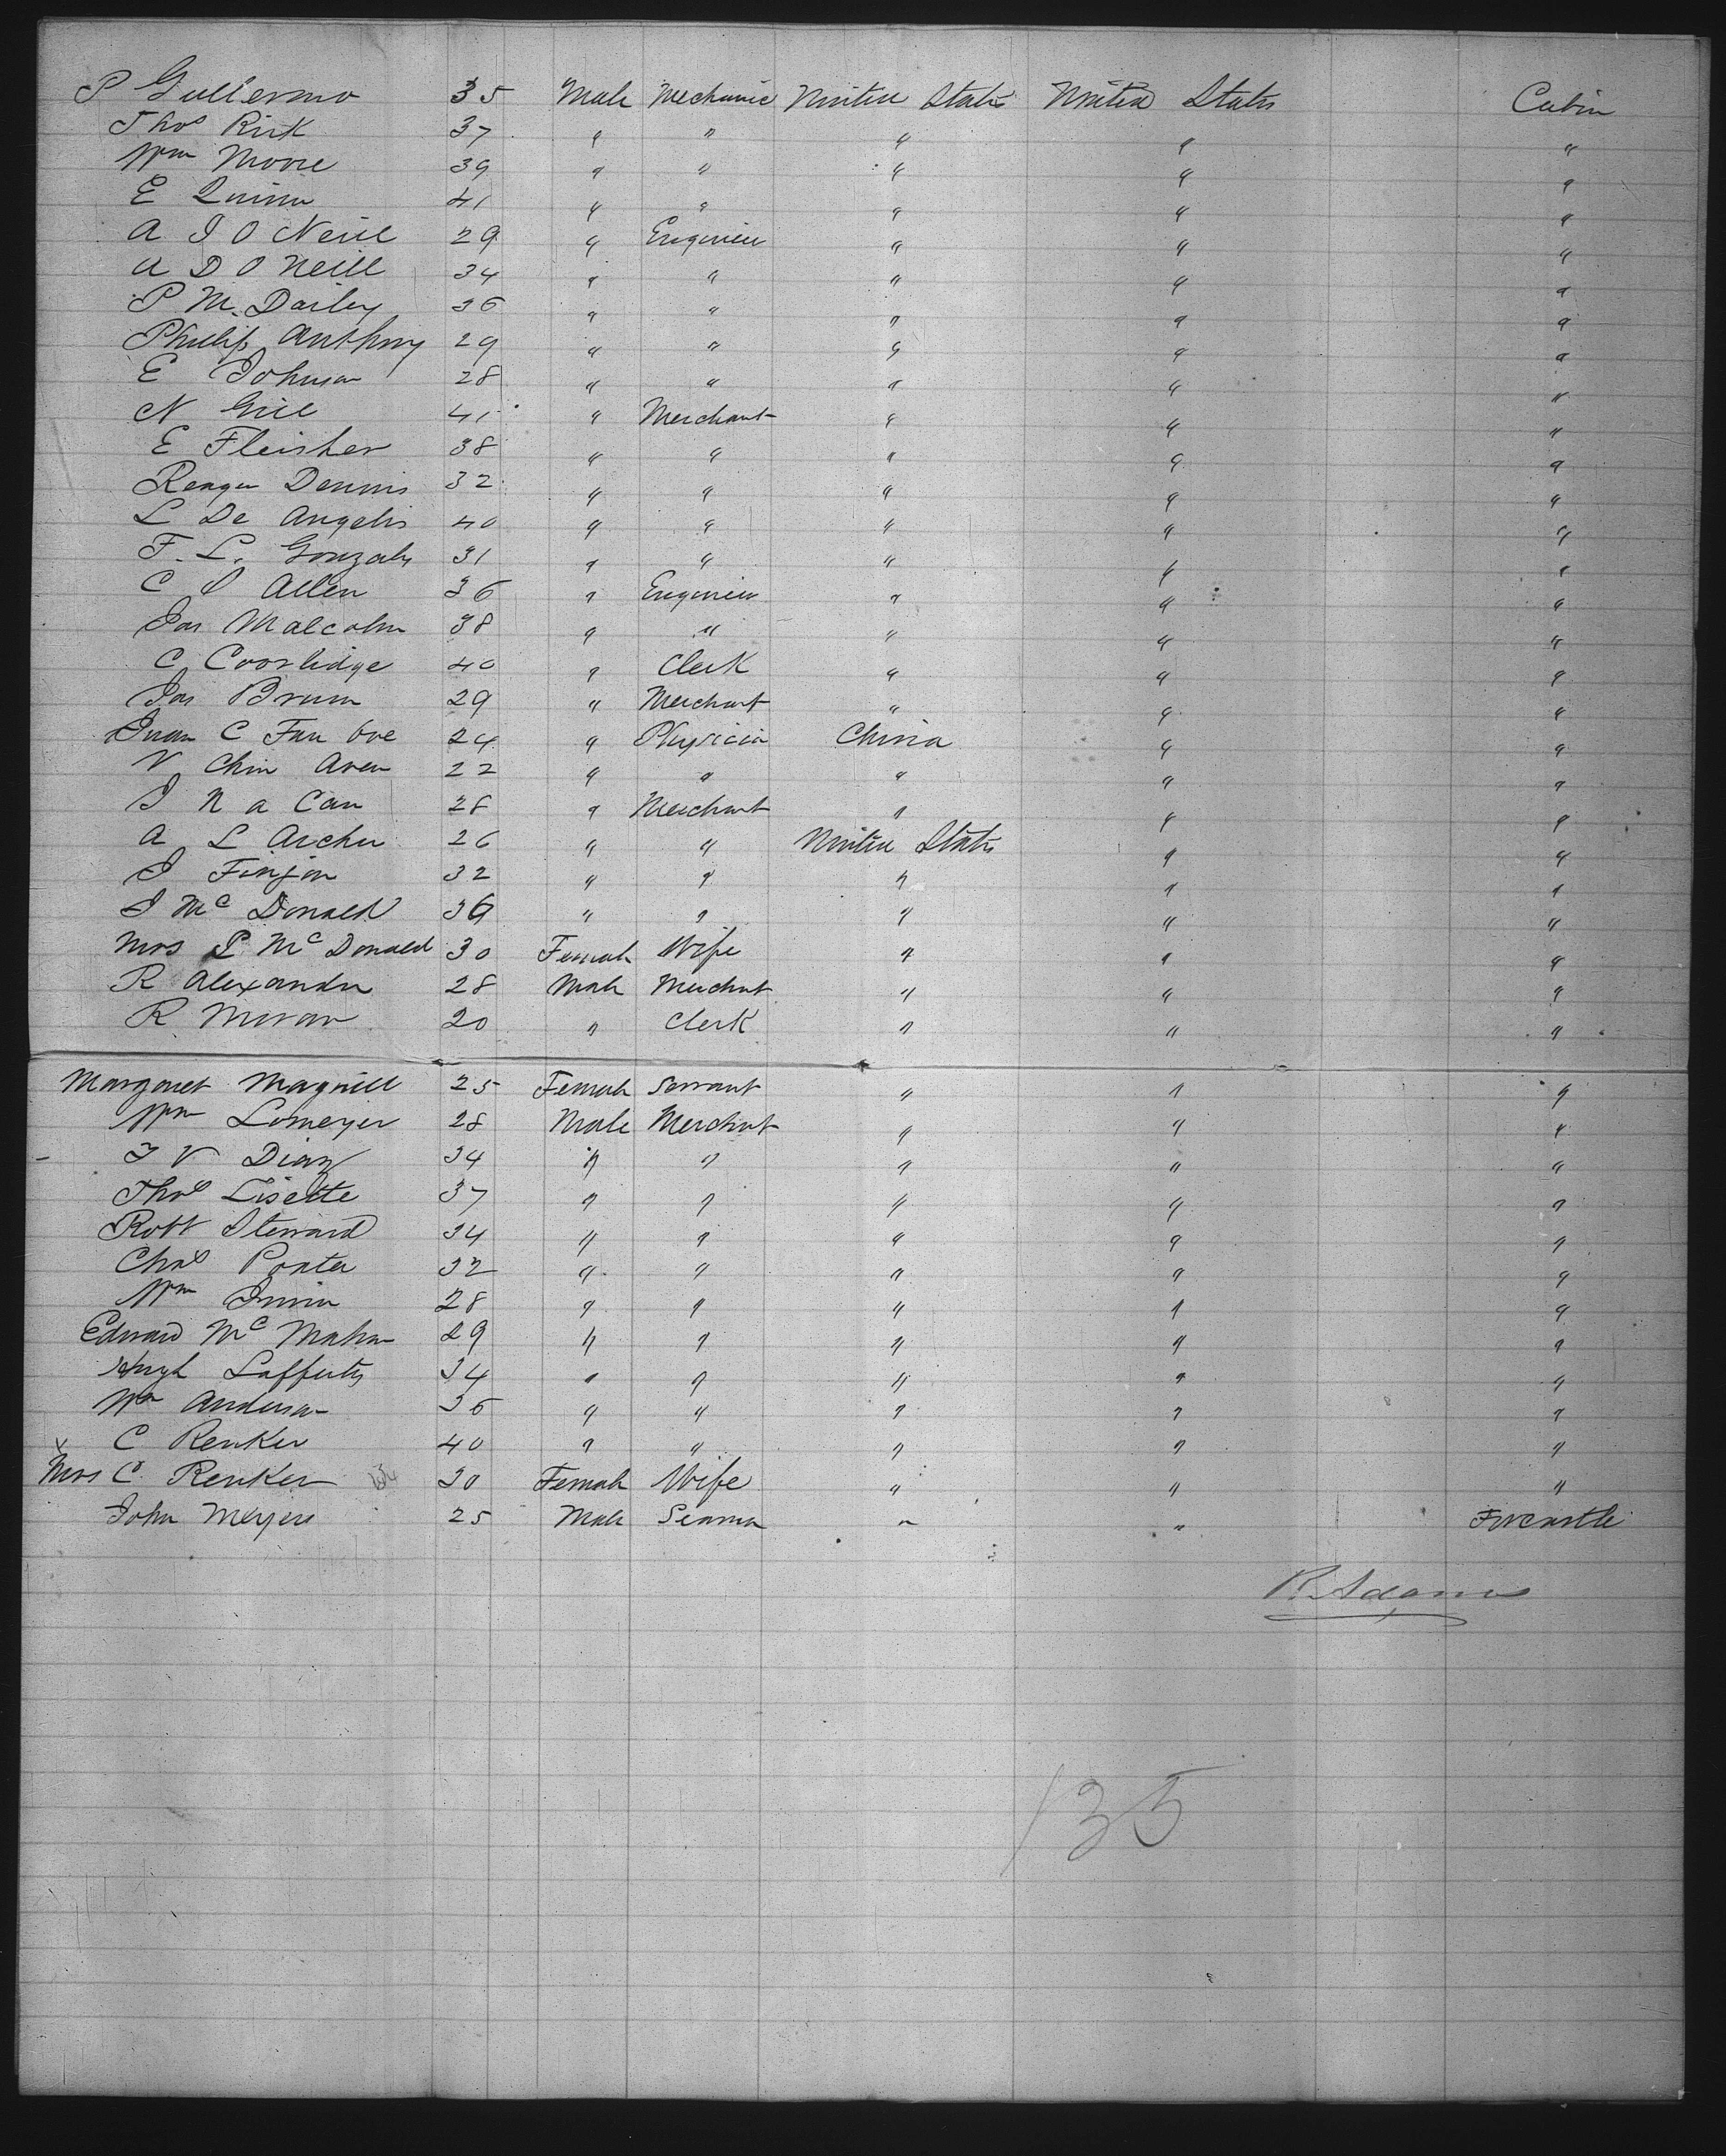 P Gullermo 35 Male Mechanic United States United States Cabin
Thos Kirk 37 " " " " "
Wm Moore 39 " " " " "
E Quinn 41 " " " " "
A J O Neill 29 " Engineer " " "
A D O Neill 34 " " " " "
P M. Dailey 36 " " " " "
Phillip Anthony 29 " " " " "
E Johnson 28 " " " " "
N Gill 41 " Merchant " " "
E Fleisher 38 " " " " "
Dennis 32 " " " " "
L De Angelis 40 " " " " "
F. L. Gonzales 31 " " " " "
C Allen 36 " Engineer " " "
Jas Malcolm 38 " " " " "
C 40 " Clerk " " "
Jas 29 " Merchant " " "
Juan C 24 " Physician China " "
V Chin 22 " " " " "
28 " Merchant " " "
A L Archer 26 " " United States " "
J 32 " " " " "
J Mc Donald 36 " " " " "
Mrs Mc Donald 30 Female Wife " " "
R Alexander 28 Male Merchant " " "
R Moran 20 " Clerk " " "
Margaret Magnill 25 Female Servant " " "
Wm Lomeyer 28 Male Merchant " " "
Diaz 34 " " " " "
Thos Lisette 37 " " " " "
Robt Steward 34 " " " " "
Chas Porter 32 " " " " "
Wm 28 " " " " "
Edward Mc Mahon 29 " " " " "
Hugh Lafferty 34 " " " " "
Wm Anderson 36 " " " " "
C Renker 40 " " " " "
Mrs C. Renker 30 Female Wife " " "
John Meyers 25 Male Seaman " " Forcastle
R. Adams
135